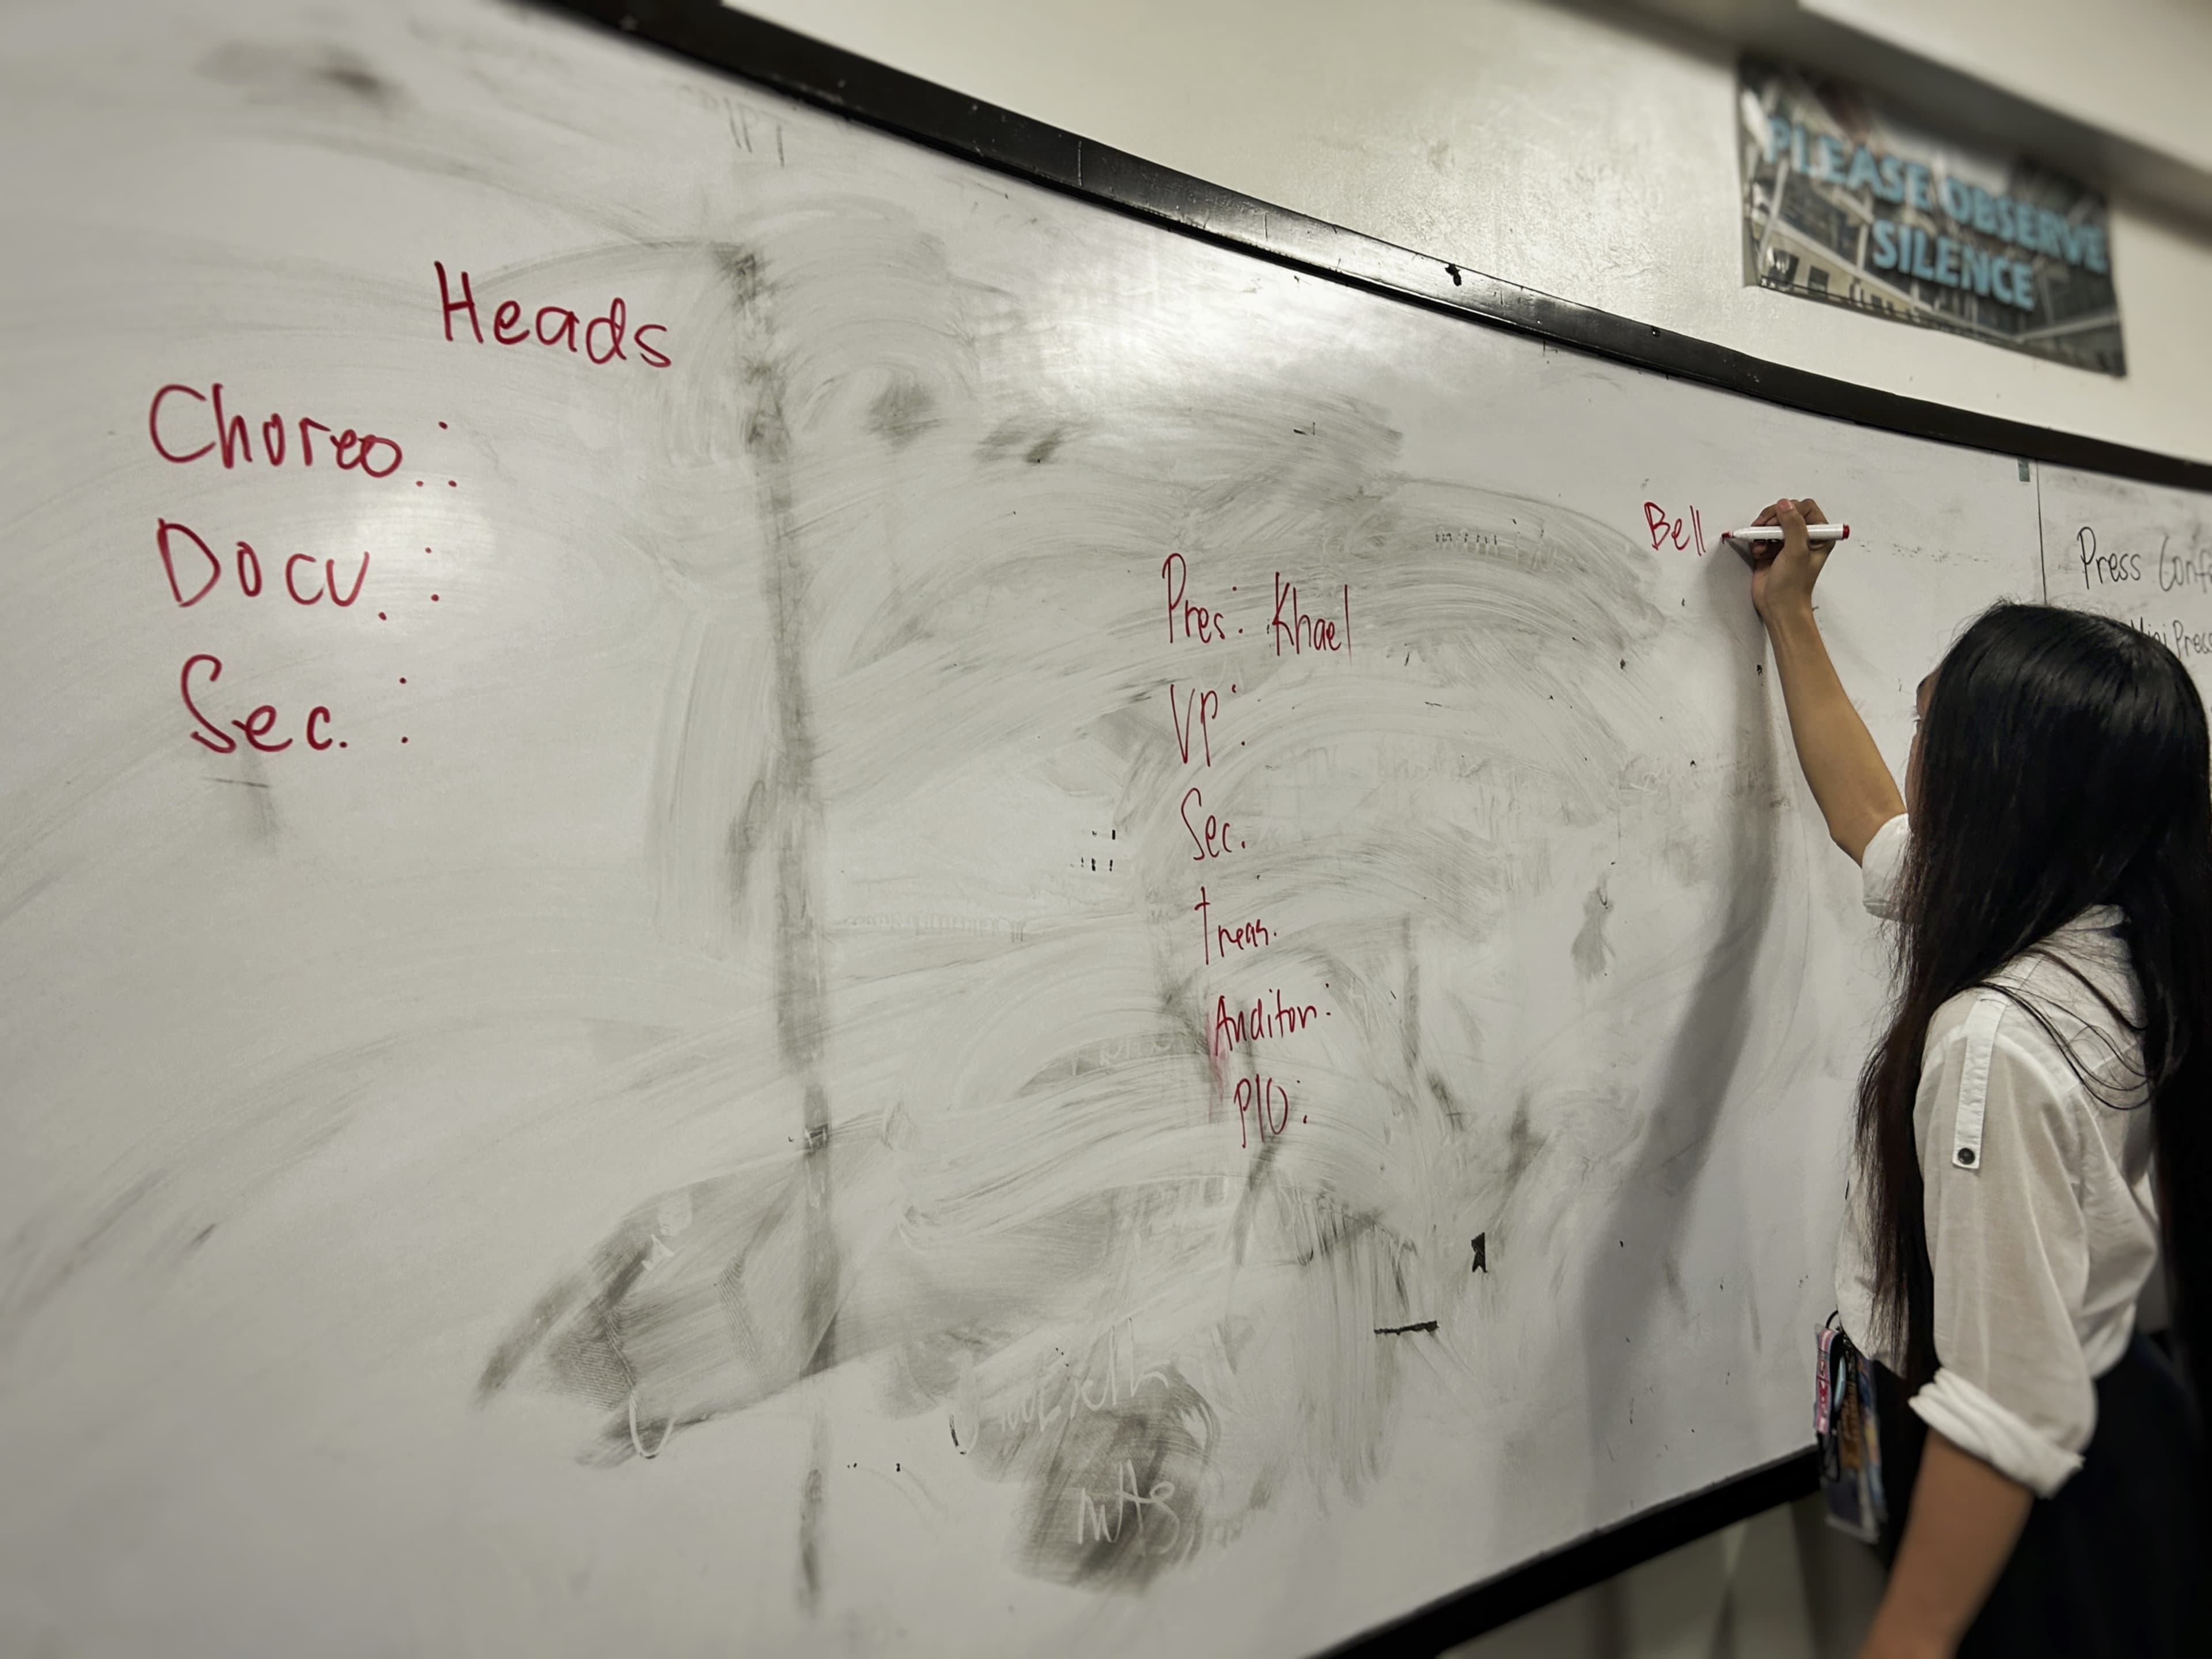 PLEASE OBSERVE
SILENCE
Heads
Choreo.:
Docu.:
Sec.:
Bell
Pres: Khael
VP:
Sec.
treas.
Auditor:
PIO:
Press Conf
Mini Press